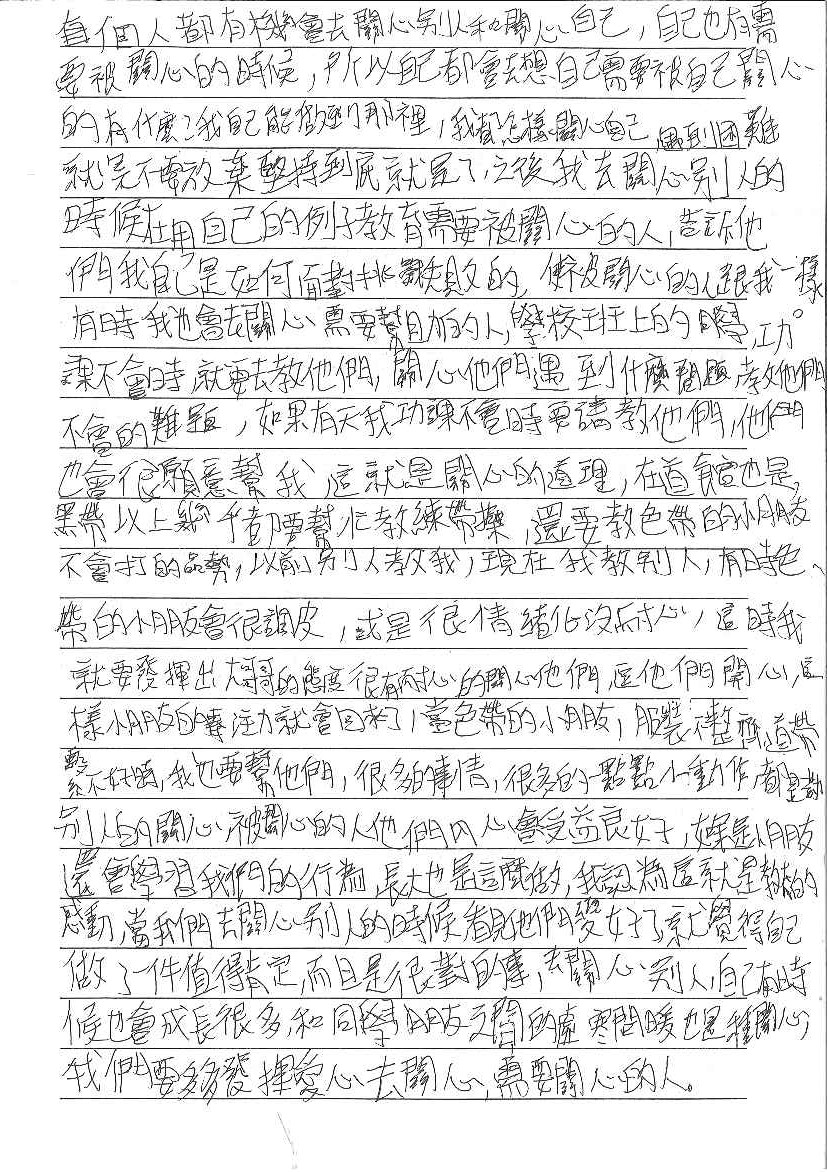 每個人都有機會去關心別人和關心自己，自己也有需
要被關心的時候，所以自己都會去想自己需要被自己關心
的有什麼？我自己能做到那裡，我都怎樣關心自己 遇到困難
就是不要放棄堅持到底就是了，之後我去關心別人的
時候在用自己的例子教育需要被關心的人，告訴他
們我自己是如何面對挑戰失敗的，使被關心的人跟我一樣。
有時我也會去關心需要幫助的人，學校班上的同學，功
課不會時就要去教他們，關心他們遇到什麼問題，教他們
不會的難題，如果有天我功課不會時要請教他們，他們
也會很願意幫我，這就是關心的道理，在道館也是，
黑帶以上幾乎都要幫忙教練帶操，還要教色帶的小朋友
不會打的品勢，以前別人教我，現在我教別人，有時色
帶的小朋友會很調皮，或是很情緒化沒耐心，這時我
就要發揮出大哥哥的態度很有耐心的關心他們，逗他們開心，這
樣小朋友的專注力就會回來了，當色帶的小朋友，服裝不整齊，道帶
繫不好時，我也要幫他們，很多的事情，很多的一點點小動作，都是對
別人的關心，被關心的人他們內心會受益良好，如果是小朋友
還會學習我們的行為，長大也是這麼做，我認為這就是教的
感動，當我們去關心別人的時候看見他們變好了就覺得自己
做了一件值得肯定，而且是很對的事，去關心別人，自己有時
候也會成長很多，和同學朋友之間的噓寒問暖也是種關心，
我們要多多發揮愛心去關心，需要關心的人。